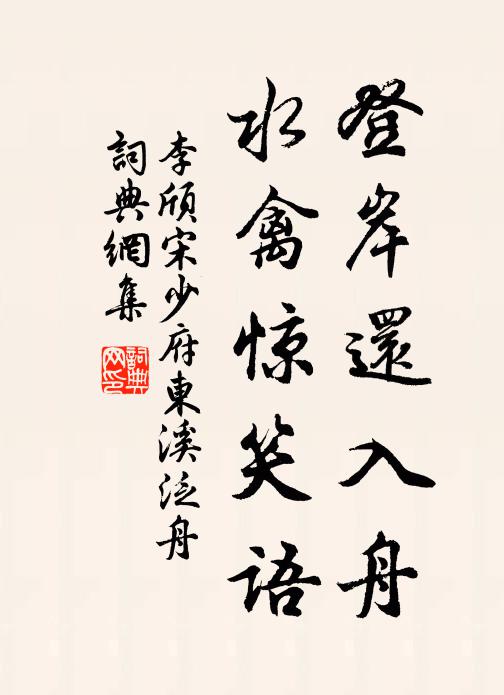 登岸還入舟
水禽惊笑語
李頎宋少府東溪泛舟
詞典網集
詞典
网印